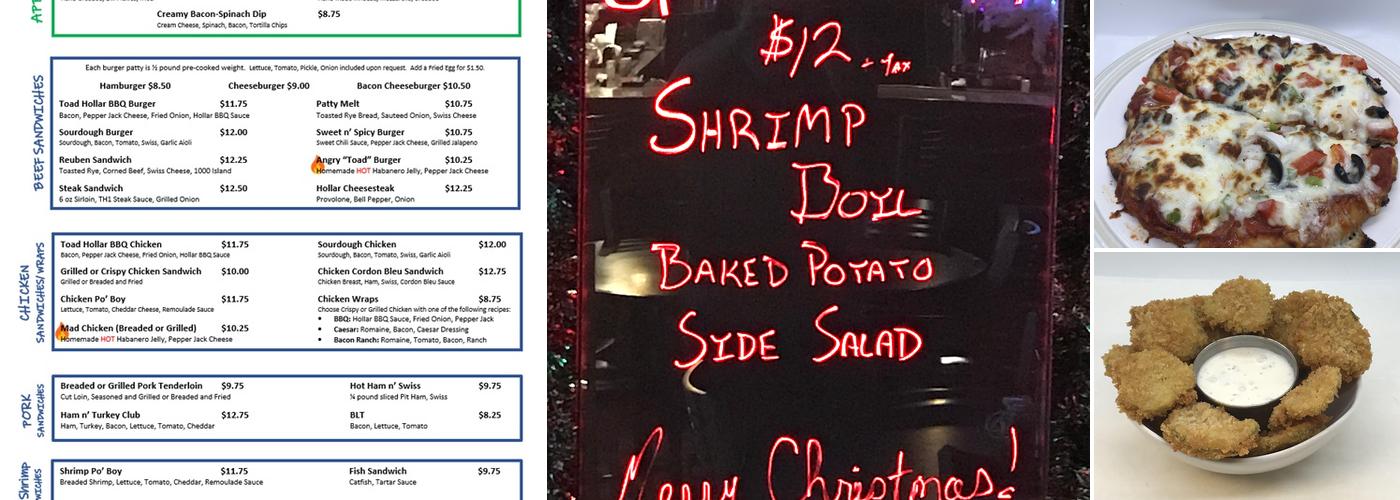 Creamy Bacon-Spinach Dip $8.75
Cream Cheese, Spinach, Bacon, Tortilla Chips
BEEF SANDWICHES
Each burger patty is ½ pound pre-cooked weight. Lettuce, Tomato, Pickle, Onion included upon request. Add a Fried Egg for $1.50.
Hamburger $8.50 Cheeseburger $9.00 Bacon Cheeseburger $10.50
Toad Hollar BBQ Burger $11.75
Bacon, Pepper Jack Cheese, Fried Onion, Hollar BBQ Sauce
Sourdough Burger $12.00
Sourdough, Bacon, Tomato, Swiss, Garlic Aioli
Reuben Sandwich $12.25
Toasted Rye, Corned Beef, Swiss Cheese, 1000 Island
Steak Sandwich $12.50
6 oz Sirloin, TH1 Steak Sauce, Grilled Onion
Patty Melt $10.75
Toasted Rye Bread, Sauteed Onion, Swiss Cheese
Sweet n' Spicy Burger $10.75
Sweet Chili Sauce, Pepper Jack Cheese, Grilled Jalapeno
Angry "Toad" Burger $10.25
Homemade HOT Habanero Jelly, Pepper Jack Cheese
Hollar Cheesesteak $12.25
Provolone, Bell Pepper, Onion
CHICKEN
SANDWICHES/WRAPS
Toad Hollar BBQ Chicken $11.75
Bacon, Pepper Jack Cheese, Fried Onion, Hollar BBQ Sauce
Grilled or Crispy Chicken Sandwich $10.00
Grilled or Breaded and Fried
Chicken Po' Boy $11.75
Lettuce, Tomato, Cheddar Cheese, Remoulade Sauce
Mad Chicken (Breaded or Grilled) $10.25
Homemade HOT Habanero Jelly, Pepper Jack Cheese
Sourdough Chicken $12.00
Sourdough, Bacon, Tomato, Swiss, Garlic Aioli
Chicken Cordon Bleu Sandwich $12.75
Chicken Breast, Ham, Swiss, Cordon Bleu Sauce
Chicken Wraps $8.75
Choose Crispy or Grilled Chicken with one of the following recipes:
• BBQ: Hollar BBQ Sauce, Fried Onion, Pepper Jack
• Caesar: Romaine, Bacon, Caesar Dressing
• Bacon Ranch: Romaine, Tomato, Bacon, Ranch
PORK
SANDWICHES
Breaded or Grilled Pork Tenderloin $9.75
Cut Loin, Seasoned and Grilled or Breaded and Fried
Ham n' Turkey Club $12.75
Ham, Turkey, Bacon, Lettuce, Tomato, Cheddar
Hot Ham n' Swiss $9.75
¼ pound sliced Pit Ham, Swiss
BLT $8.25
Bacon, Lettuce, Tomato
Shrimp
Shrimp Po' Boy $11.75
Breaded Shrimp, Lettuce, Tomato, Cheddar, Remoulade Sauce
Fish Sandwich $9.75
Catfish, Tartar Sauce
$12 - TAX
SHRIMP
BOIL
BAKED POTATO
SIDE SALAD
Merry Christmas!